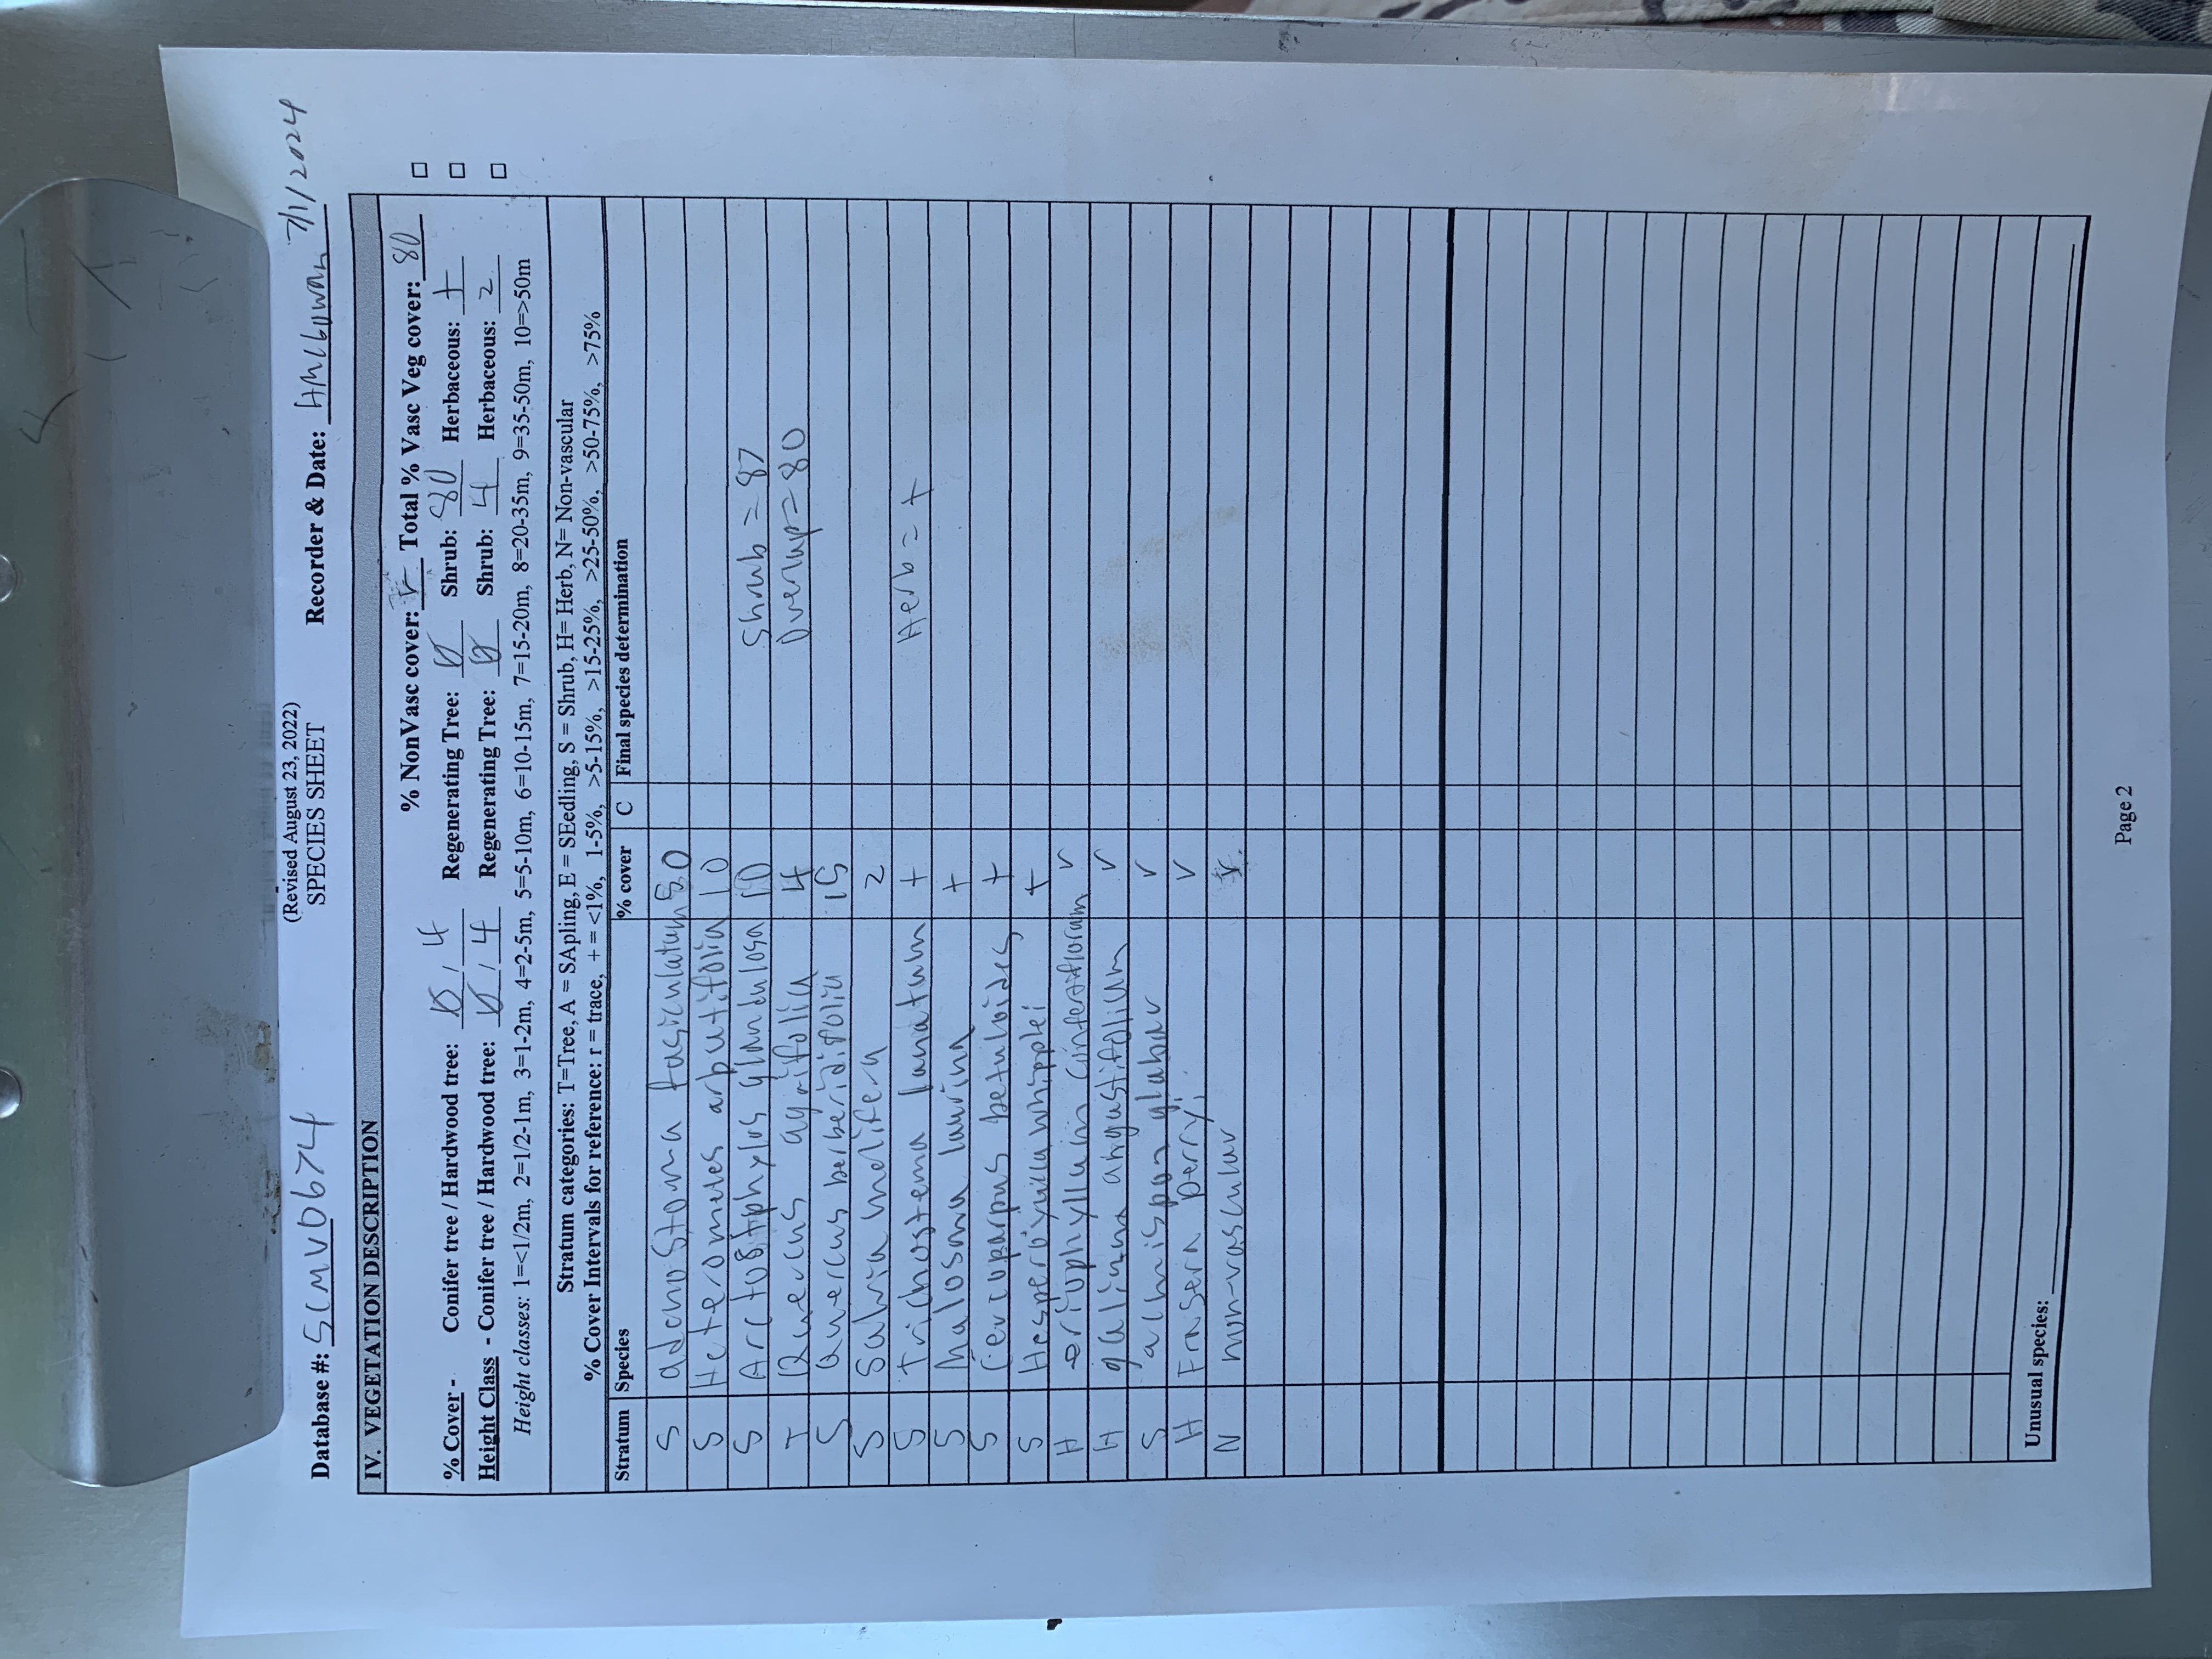 (Revised August 23, 2022)
SPECIES SHEET
Database #: SCMV0674 Recorder & Date: 7/1/2024
IV. VEGETATION DESCRIPTION
% NonVasc cover: r Total % Vasc Veg cover: 80
% Cover - Conifer tree / Hardwood tree: 0 / 4 Regenerating Tree: 0 Shrub: 80 Herbaceous: +
Height Class - Conifer tree / Hardwood tree: 0 / 4 Regenerating Tree: 0 Shrub: 4 Herbaceous: 2
Height classes: 1=<1/2m, 2=1/2-1m, 3=1-2m, 4=2-5m, 5=5-10m, 6=10-15m, 7=15-20m, 8=20-35m, 9=35-50m, 10=>50m
Stratum categories: T=Tree, A = SApling, E = SEedling, S = Shrub, H= Herb, N= Non-vascular
% Cover Intervals for reference: r = trace, + = <1%, 1-5%, >5-15%, >15-25%, >25-50%, >50-75%, >75%
Stratum Species % cover C Final species determination
S adenostoma fasiculatum 50
S Heteromeles arbutifolia 10
S Arctostphylos glandulosa 10 Shrub = 87
T Quercus agrifolia 4 Overlap=80
S Quercus berberidifolia 15
S Salvia melifera 2
S Trichostema lanatum + Herb = +
S malosma laurina +
S Cercoparpus betuloides +
S Hesperoyucca whipplei +
H eriophyllum confertiflorum r
H galium angustifolium r
S acmispon glaber r
H Frasera perryi r
N non-vascular r
Unusual species:
Page 2